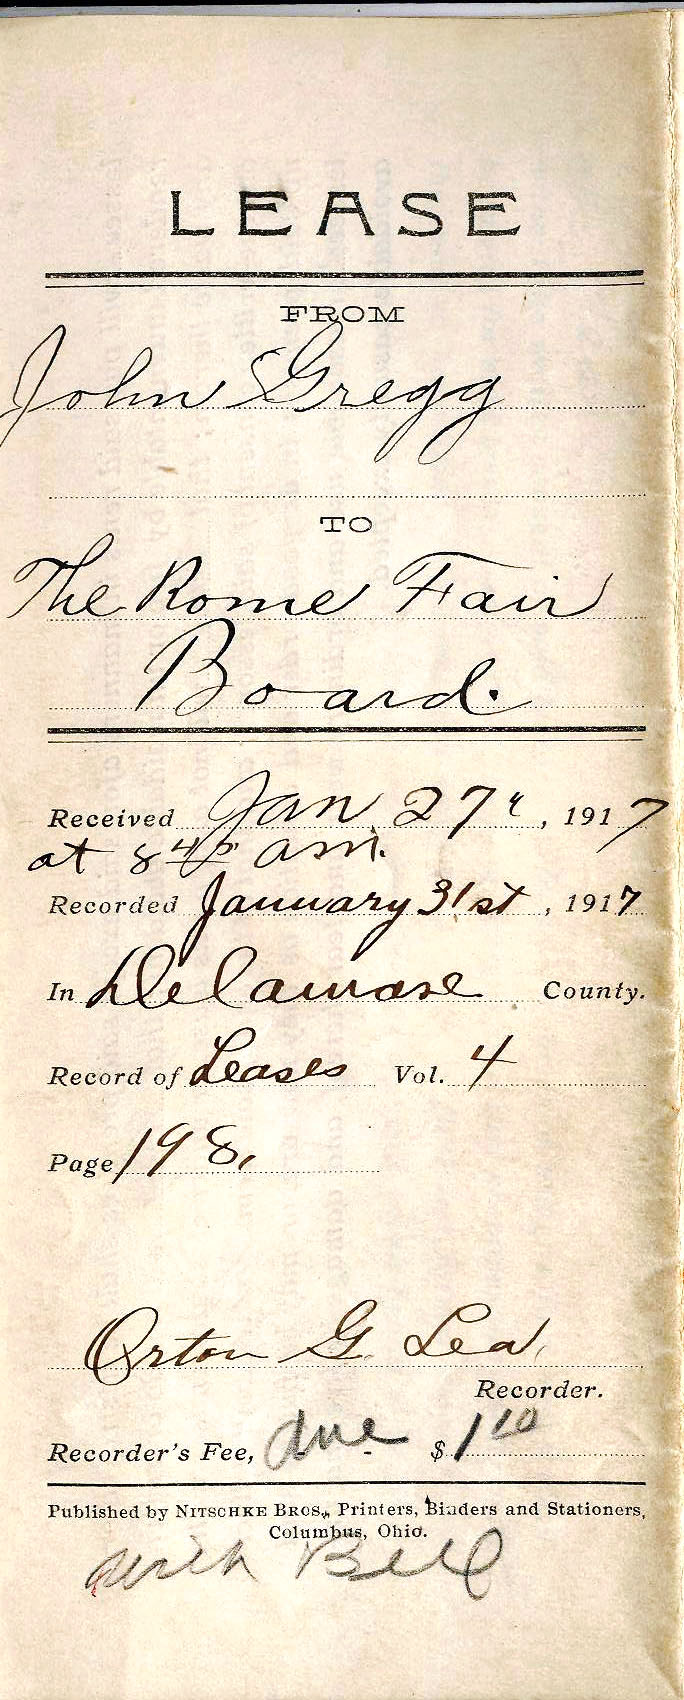 LEASE
FROM
John Gregg
TO
The Rome Fair
Board.
Received Jan. 27", 1917
at 8 45 am.
Recorded January 31st, 1917
In Delaware County.
Record of Leases Vol. 4
Page 198,
Orton G. Lea,
Recorder.
Recorder's Fee, due $1 10
Published by NITSCHKE BROS., Printers, Binders and Stationers,
Columbus, Ohio.
with Bell